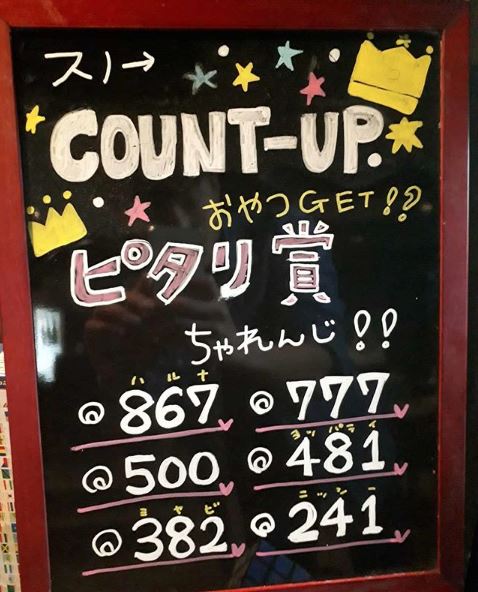 スノ→
COUNT-UP.
おやつGET!!
ピタリ賞
ちゃれんじ!!
ハルナ
867
777
500
ヨッパライ
481
ミヤビ
382
ニッシー
241